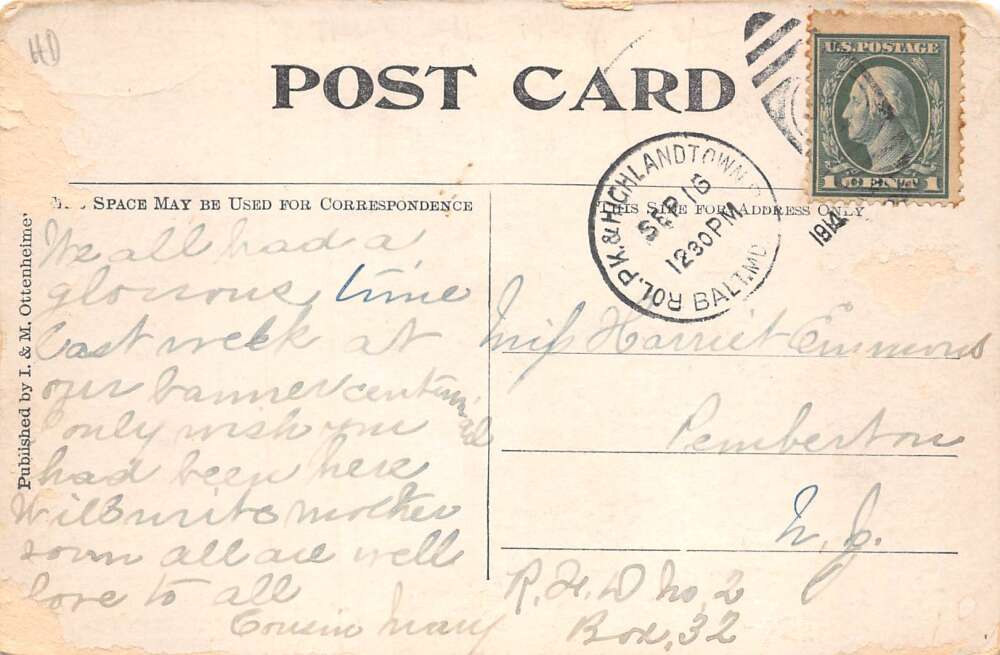 HD
POST CARD
U.S. POSTAGE
1 1
SPACE MAY BE USED FOR CORRESPONDENCE
THIS SIDE FOR ADDRESS ONLY
ROL. PK. & HIGHLANDTOWN
BALT. MD.
SEP 16
12 30 PM
1914
Published by I. & M. Ottenheimer
We all had a
glorious time
last week at
our banner centennial
only wish you
had been here
Will write mother
soon all are well
love to all
Cousin Mary
Miss Harriet Emmons
Pemberton
N. J.
R. F. D No. 2
Box, 32